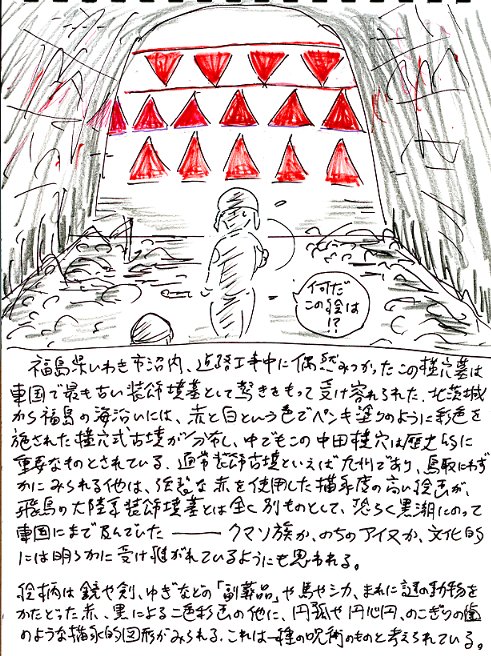 何だ
この絵は
!?
福島県いわき市沼内、道路工事中に偶然みつかったこの横穴墓は
東国で最も古い装飾墳墓として驚きをもって受け容れられた。北茨城
から福島の海沿いには、赤と白という色でペンキ塗りのように彩色を
施された横穴式古墳が分布し、中でもこの中田横穴は歴史的に
重要なものとされている。通常装飾古墳といえば九州であり、鳥取にわず
かにみられる他は、 な赤を使用した描写度の高い絵 が、
飛鳥の大陸系装飾墳墓とは全く別ものとして、恐らく黒潮にのって
東国にまで及んでいた――クマソ族か、のちのアイヌか、文化的
には明らかに受け継がれているようにも思われる。
絵柄は鏡や剣、ゆぎなどの「副葬品」や馬やシカ、まれに謎の動物を
かたどった赤、黒による二色彩色の他に、円弧や円心円、のこぎりの歯
のような描永的図形がみられる。これは一種の呪術のものと考えられている。